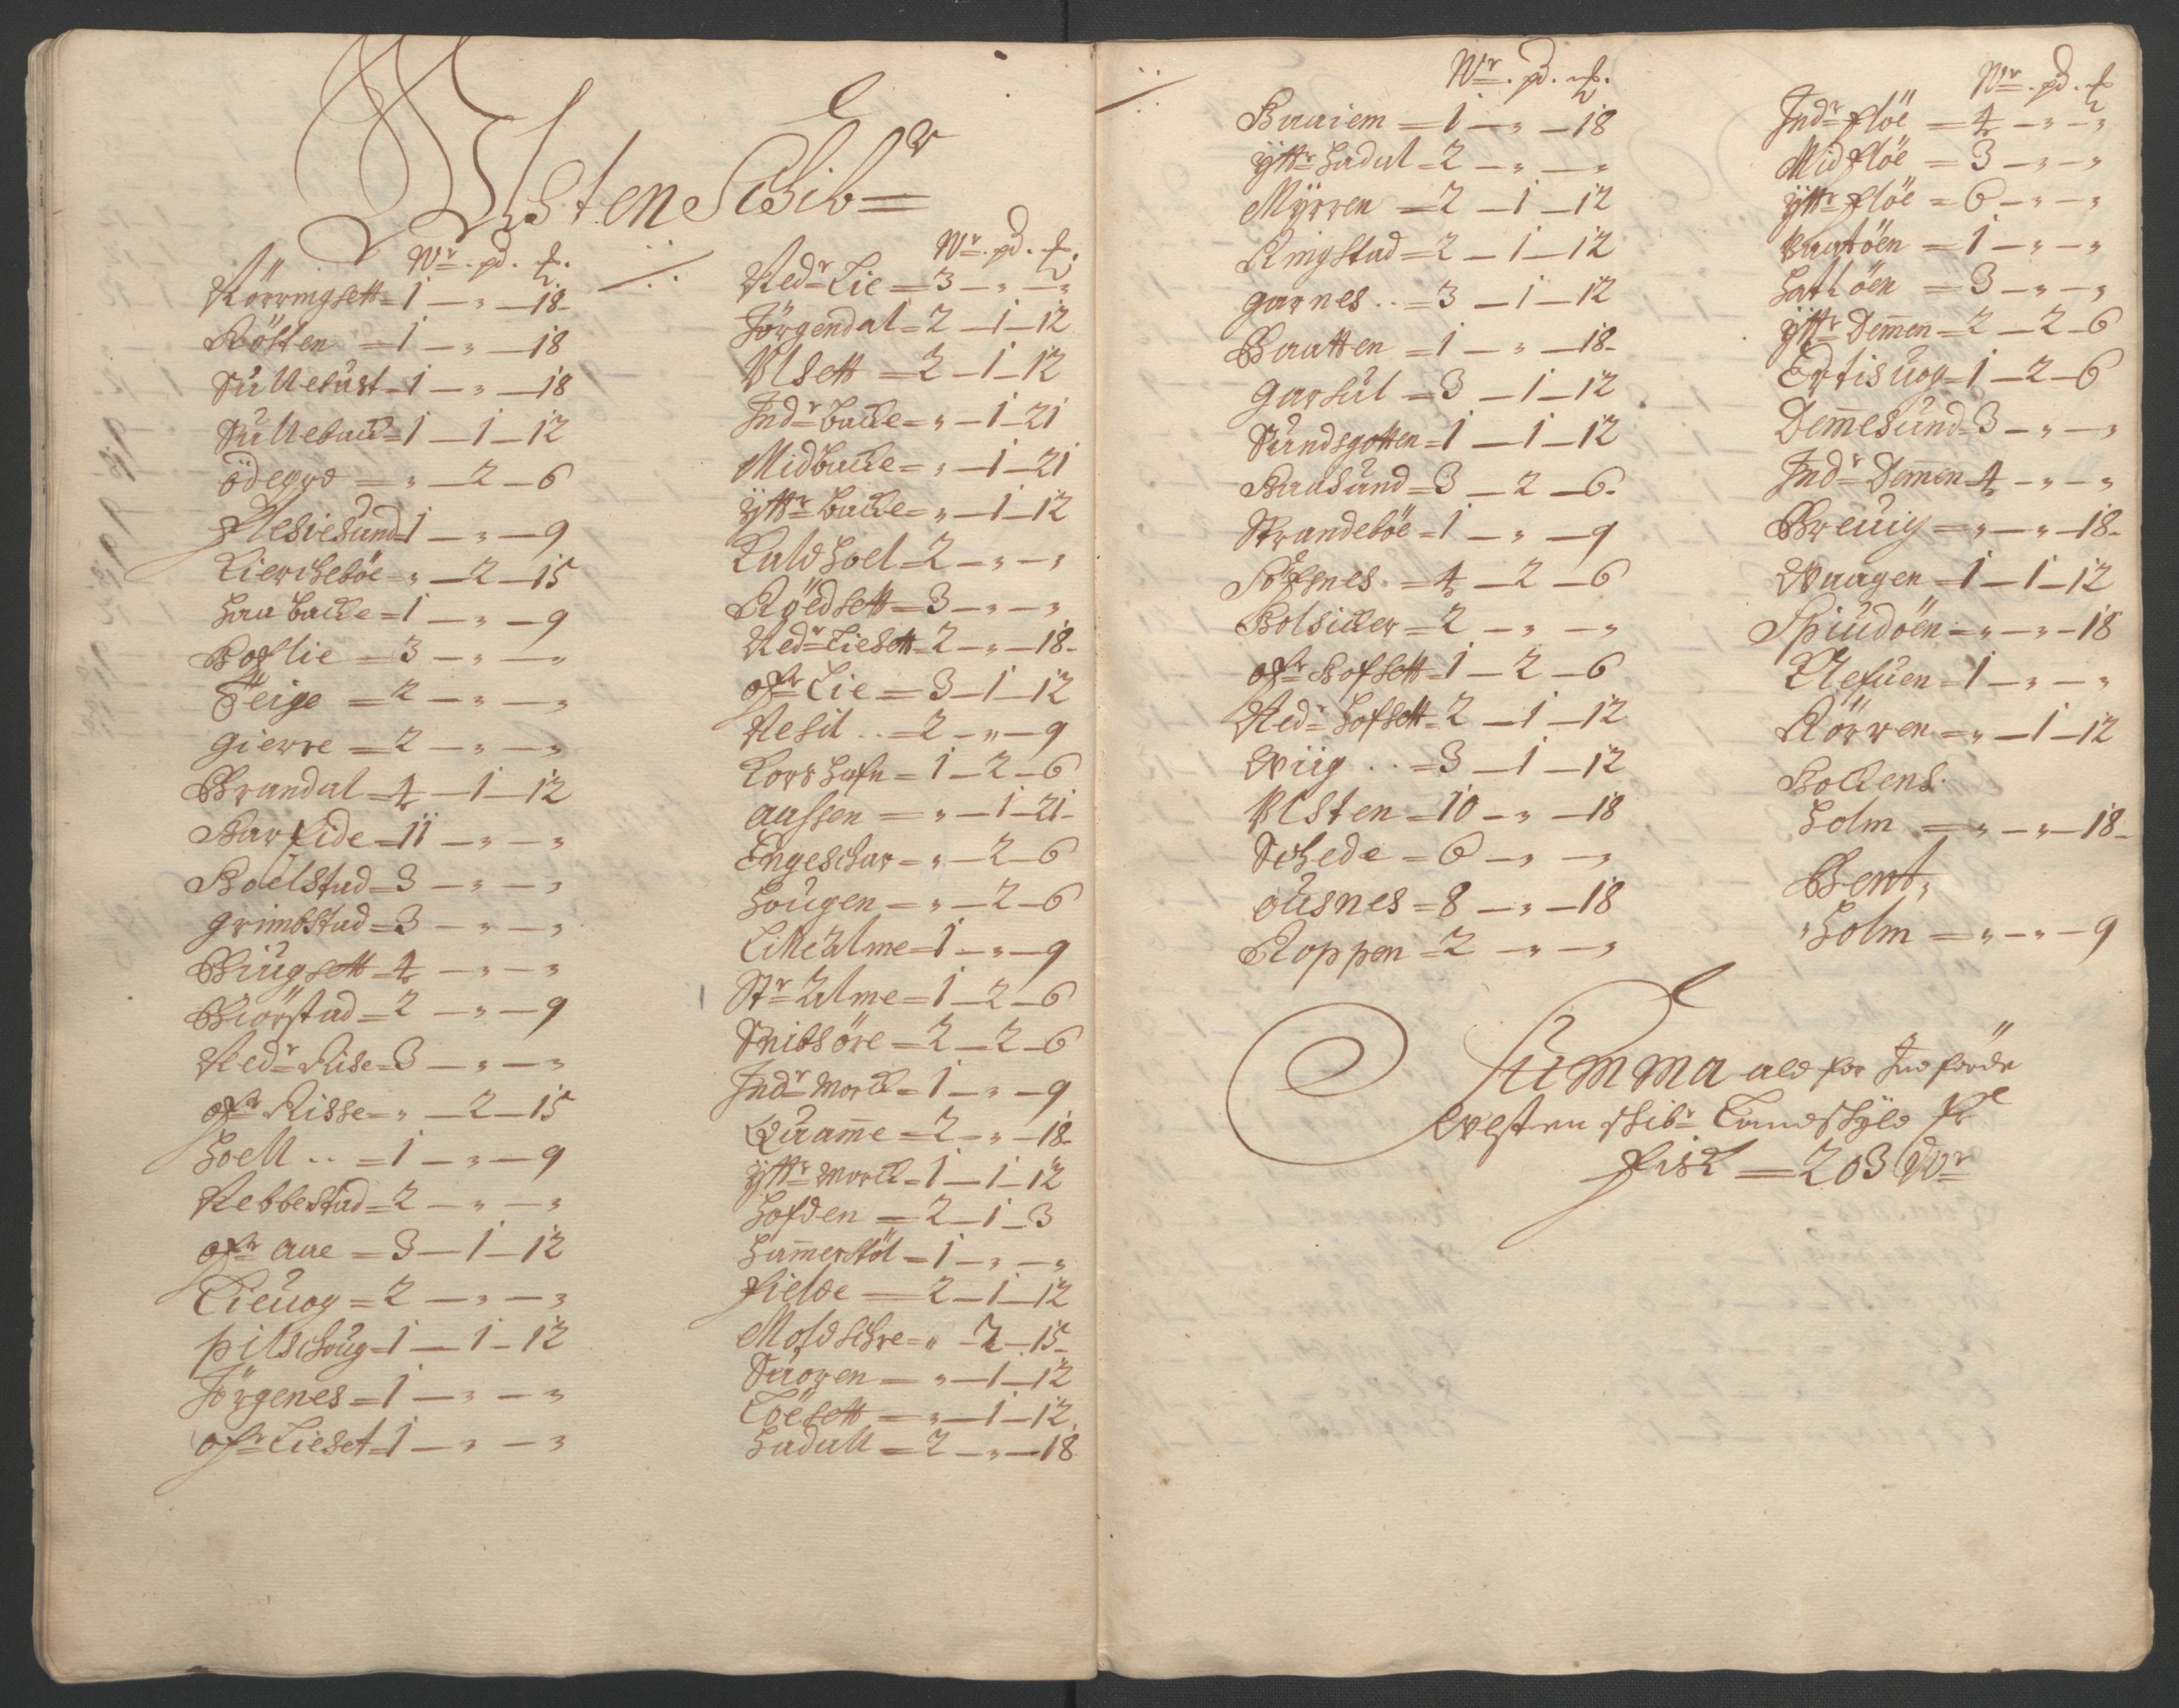 Ulsten Schibr
Wr. pd. ℔.
Rörringsett = 1 — " — 18
Rösten = 1 — " — 18
Sullebust = 1 — " — 18
Sullebach = 1 — 1 — 12
ödegrd = " — 2 — 6
Flesiesund = 1 — " — 9
Kiercheböe = " — 2 — 15
Haubache = 1 — " — 9
Boflie = 3 — " — "
Teige = 2 — " — "
gierre = 2 — " — "
Brandal = 4 — 1 — 12
Harside = 11 — " — "
Boelstad = 3 — " — "
grimbstad = 3 — " — "
Biugsett = 4 — " — "
Biörstad = 2 — " — 9
Nedr Rise = 3 — " — "
ofr Risse = " — 2 — 15
Hoell .. = 1 — " — 9
Rebbestad = 2 — " — "
ofr aae = 3 — 1 — 12
Lieuog = 2 — " — "
pilschoug = 1 — 1 — 12
Jörgenes = 1 — " — "
ofr Lieset = 1 — " — "
Wr. pd. ℔.
Nedr Lie = 3 — " — "
Jörgendal = 2 — 1 — 12
Ulsett = 2 — 1 — 12
Indr bache = " — 1 — 21
Midbache = " — 1 — 21
Yttr bache = " — 1 — 12
Kaldhoel = 2 — " — "
Röedsett = 3 — " — "
Nedr Liesett = 2 — " — 18
ofr Lie = 3 — 1 — 12
Nesit .. = 2 — " — 9
Korshafn = 1 — 2 — 6
aassen = " — 1 — 21
Engeschar = " — 2 — 6
Hougen = " — 2 — 6
Lille Alme = 1 — " — 9
Str Alme = 1 — 2 — 6
Snibsöre = 2 — 2 — 6
Indr Morch = 1 — " — 9
Quam̄e = 2 — " — 18
Yttr Morch = 1 — 1 — 12
Hofden = 2 — 1 — 3
Ham̄erstöl = 1 — " — "
Fielde = 2 — 1 — 12
Moldschre = " — 2 — 15
Suoren = " — 1 — 12
Löesett = " — 1 — 12
Hadall = 2 — " — 18
Wr. pd. ℔.
Baaiem = 1 — " — 18
Yttr Hadal = 2 — " — "
Myrren = 2 — 1 — 12
Ringstad = 2 — 1 — 12
garnes .. = 3 — 1 — 12
Baatten = 1 — " — 18
garsul = 3 — 1 — 12
Sundsgotten = 1 — 1 — 12
Hausund = 3 — 2 — 6
Strandeböe = 1 — " — 9
Söfsnes = 4 — 2 — 6
Bolsicher = 2 — " — "
ofr Hofsett = 1 — 2 — 6
Nedr Hofsett = 2 — 1 — 12
Wiig .. = 3 — 1 — 12
Ulsten = 10 — " — 18
Schede = 6 — " — "
ousnes = 8 — " — 18
Roppen = 2 — " — "
Wr. pd. ℔
Indr flöe = 4 — " — "
Midflöe = 3 — " — "
Yttr flöe = 6 — " — "
Vaatöen = 1 — " — "
Hatlöen = 3 — " — "
Yttr Dem̄en = 2 — 2 — 6
Ertisuog = 1 — 2 — 6
Dem̄esund = 3 — " — "
Indr Dem̄en = 4 — " — "
Breuig = " — " — 18
Waagen = 1 — 1 — 12
Spiudöen = " — " — 18
Klefuen = 1 — " — "
Rörren = " — 1 — 12
Bochens
Holm = " — " — 18
Bent,
Holm = " — " — 9
Summa ald for Indförde
Wlsten Schibr Landschyld fr
fisk = 203 Wr